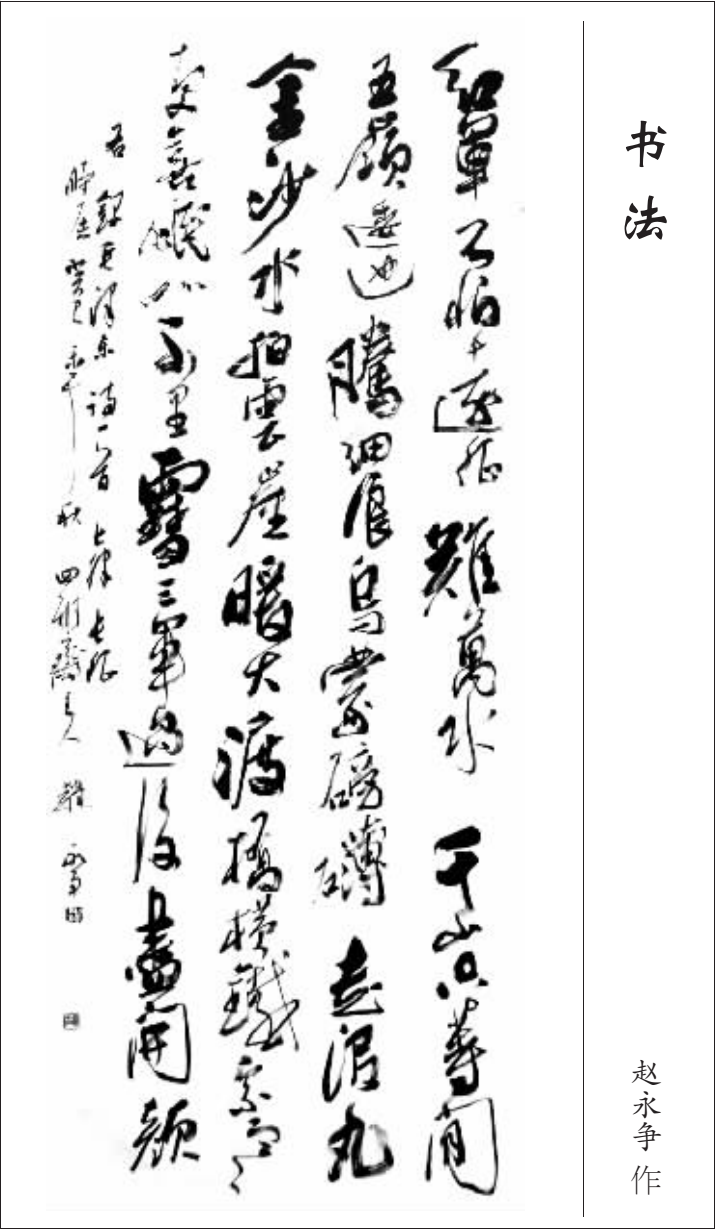 书法
赵永争 作
紅軍不怕遠征難萬水千山只等閒
五嶺逶迤騰細浪烏蒙磅礴走泥丸
金沙水拍雲崖暖大渡橋橫鐵索寒
更喜岷山千里雪三軍過後盡開顏
右錄毛澤東詩一首 七律 長征
癸巳 秋 四明 主人 趙永爭